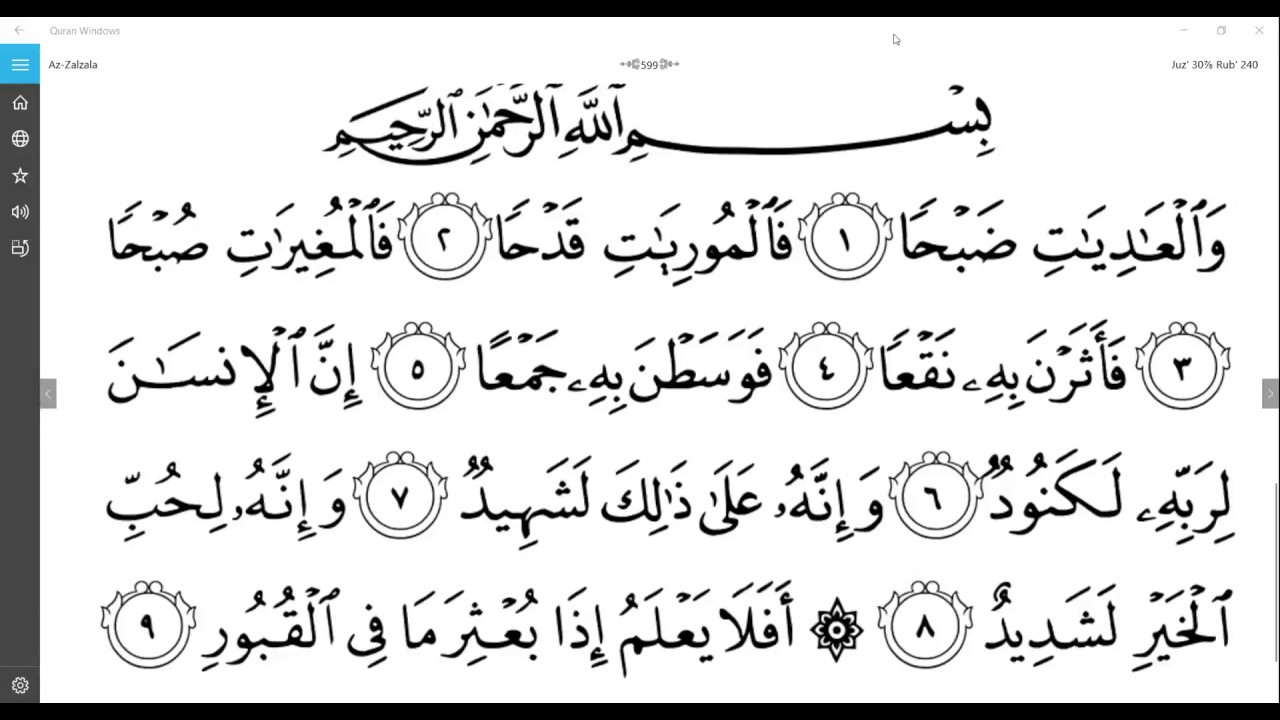 Quran Windows
Az-Zalzala 599 Juz' 30⅞ Rub' 240
بِسْمِ ٱللَّهِ ٱلرَّحْمَٰنِ ٱلرَّحِيمِ
وَٱلْعَٰدِيَٰتِ ضَبْحًا ١ فَٱلْمُورِيَٰتِ قَدْحًا ٢ فَٱلْمُغِيرَٰتِ صُبْحًا
٣ فَأَثَرْنَ بِهِۦ نَقْعًا ٤ فَوَسَطْنَ بِهِۦ جَمْعًا ٥ إِنَّ ٱلْإِنسَٰنَ
لِرَبِّهِۦ لَكَنُودٌ ٦ وَإِنَّهُۥ عَلَىٰ ذَٰلِكَ لَشَهِيدٌ ٧ وَإِنَّهُۥ لِحُبِّ
ٱلْخَيْرِ لَشَدِيدٌ ٨ ۞ أَفَلَا يَعْلَمُ إِذَا بُعْثِرَ مَا فِى ٱلْقُبُورِ ٩